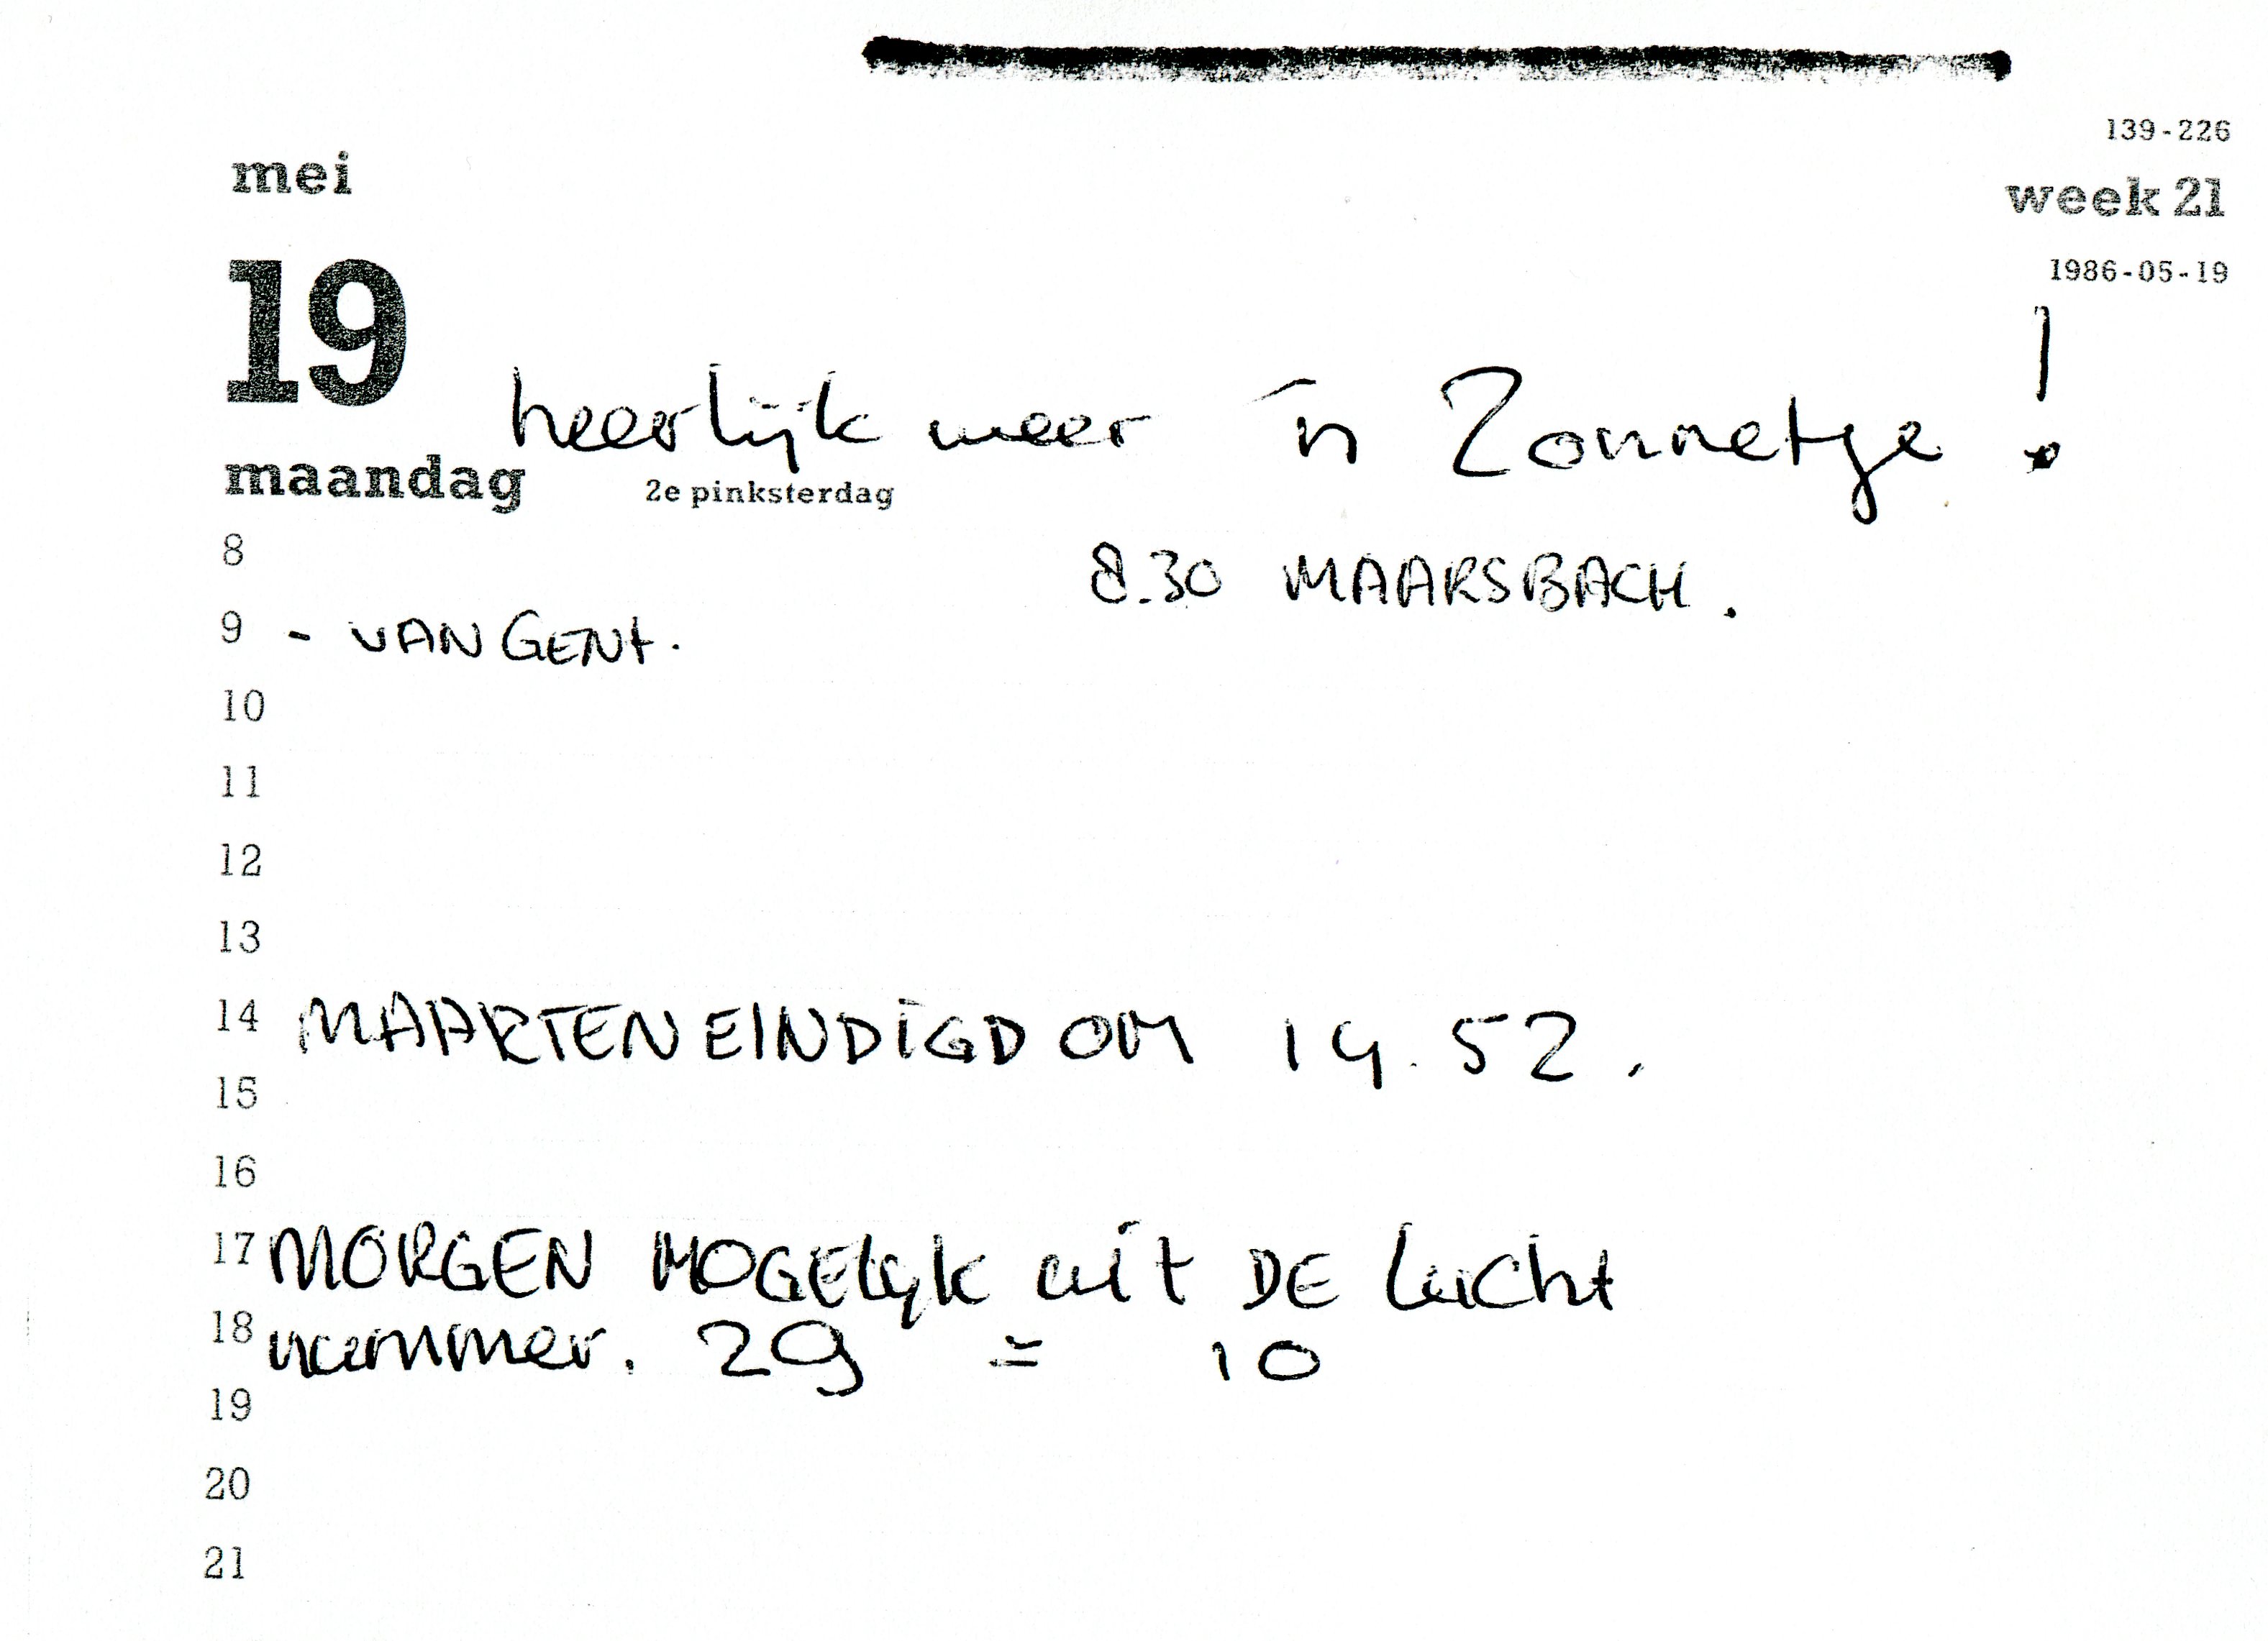 139-226
mei
week 21
19
1986-05-19
heerlijk weer 'n Zonnetje !
maandag 2e pinksterdag
8 8.30 MAARSBACH.
9 - VAN GENt.
10
11
12
13
14 MAARTEN EINDIGD OM 19.52.
15
16
17 MORGEN MOGElijk uit DE lucht
18 nummer. 29 = 10
19
20
21